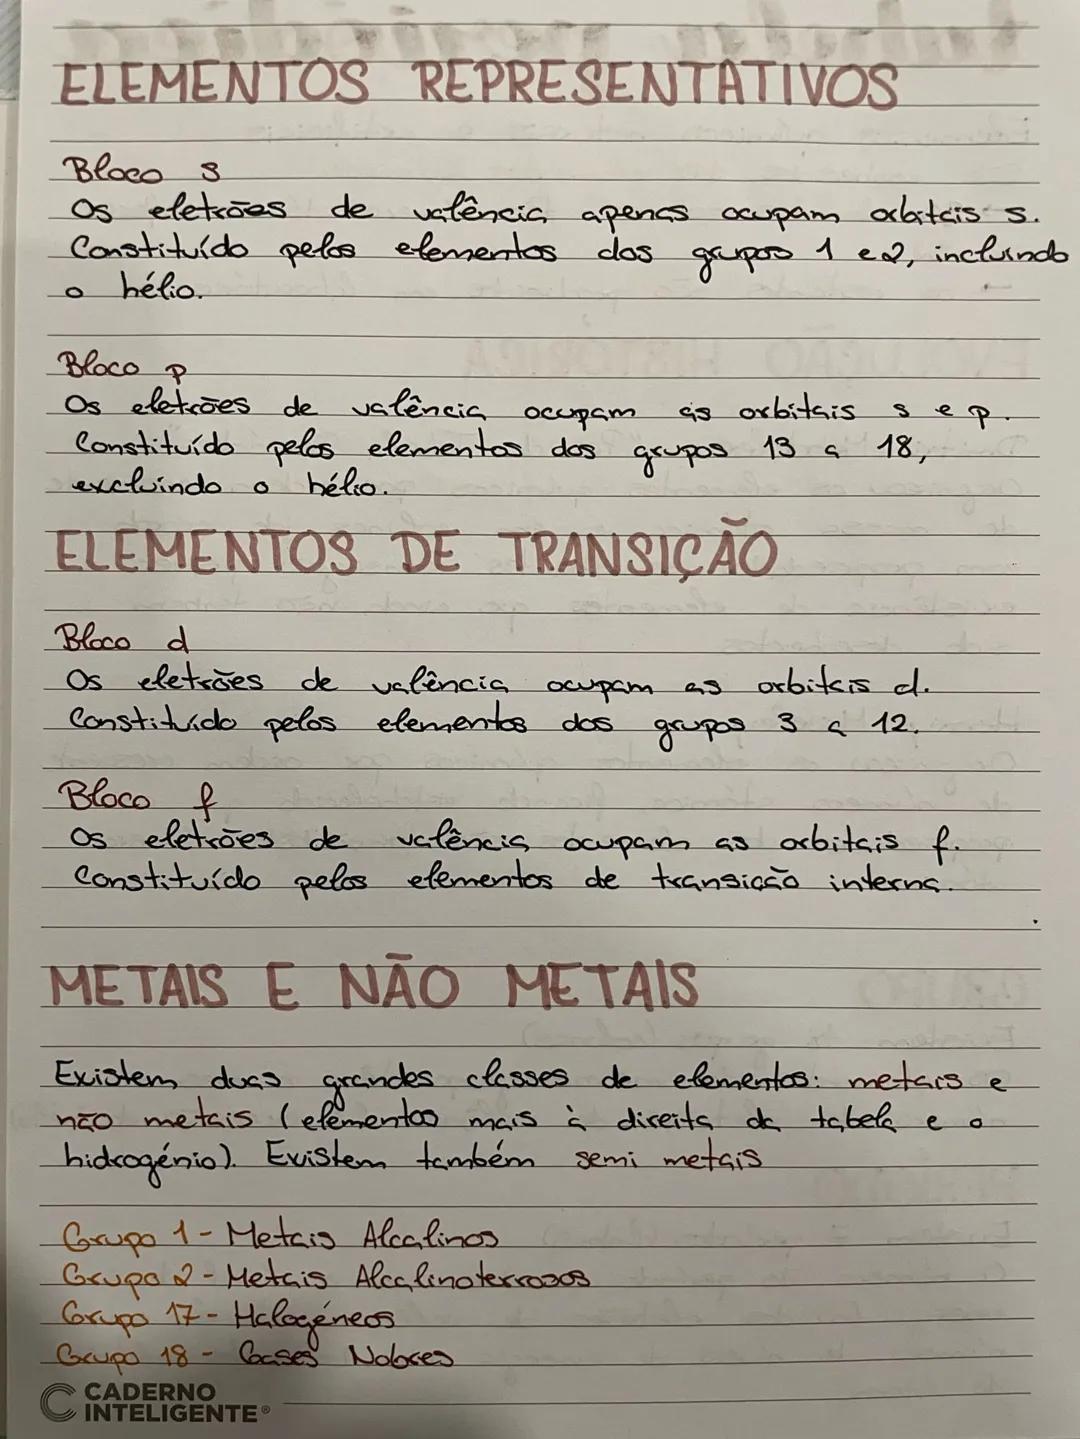 ELEMENTOS REPRESENTATIVOS
Bloco s
Os eletrões de valência apenas ocupam orbitais s.
Constituído pelos elementos dos grupos 1 e 2, incluindo
o hélio.
Bloco p
Os eletrões de valência ocupam as orbitais s e p.
Constituído pelos elementos dos grupos 13 a 18,
excluindo o hélio.
ELEMENTOS DE TRANSIÇÃO
Bloco d
Os eletrões de valência ocupam as orbitais d.
Constituído pelos elementos dos grupos 3 a 12.
Bloco f
Os eletrões de valência ocupam as orbitais f.
Constituído pelos elementos de transição interna.
METAIS E NÃO METAIS
Existem duas grandes classes de elementos: metais e
não metais (elementos mais à direita da tabela e o
hidrogénio). Existem também semi metais
Grupo 1 - Metais Alcalinos
Grupo 2 - Metais Alcalinoterrosos
Grupo 17 - Halogéneos
Grupo 18 - Gases Nobres
CADERNO
INTELIGENTE®